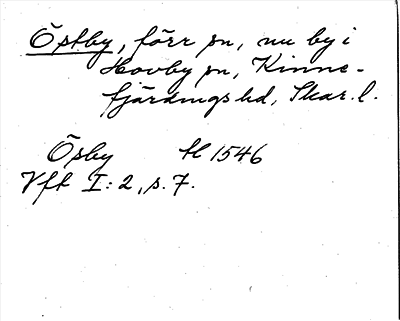 Östby, förr sn, nu by i
Hovby sn, Kinne-
fjärdings hd, Skar. l.
Ösby H 1546
Vft I: 2, s. 7.